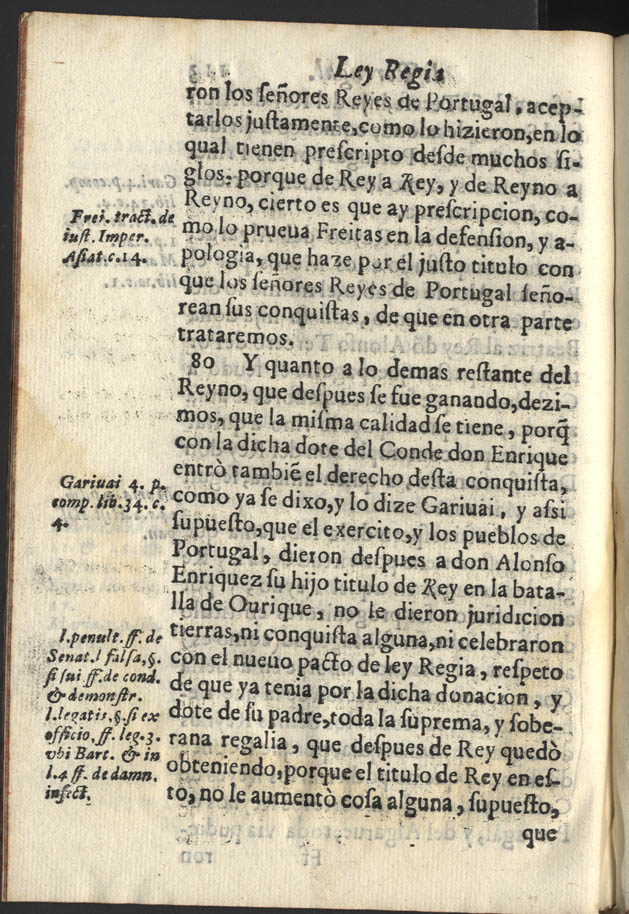 Ley Regia
ron los ſeñores Reyes de Portugal, acep-
tarlos juſtamente, como lo hizieron, en lo
qual tienen preſcripto deſde muchos ſi-
glos: porque de Rey a Rey, y de Reyno a
Reyno, cierto es que ay preſcripcion, co-
mo lo prueua Freitas en la defenſion, y a-
pologia, que haze por el juſto titulo con
que los ſeñores Reyes de Portugal ſeño-
rean ſus conquiſtas, de que en otra parte
trataremos.
Frei. tract. de
iuſt. Imper.
Aſiat. c. 14.
80 Y quanto a lo demas reſtante del
Reyno, que deſpues ſe fue ganando, dezi-
mos, que la miſma calidad ſe tiene, porq̃
con la dicha dote del Conde don Enrique
entrò tambiẽ el derecho deſta conquiſta,
como ya ſe dixo, y lo dize Gariuai, y aſsi
ſupueſto, que el exercito, y los pueblos de
Portugal, dieron deſpues a don Alonſo
Enriquez ſu hijo titulo de Rey en la bata-
lla de Ourique, no le dieron juridicion
tierras, ni conquiſta alguna, ni celebraron
con el nueuo pacto de ley Regia, reſpeto
de que ya tenia por la dicha donacion, y
dote de ſu padre, toda la ſuprema, y ſobe-
rana regalia, que deſpues de Rey quedò
obteniendo, porque el titulo de Rey en eſ-
to, no le aumentò coſa alguna, ſupueſto,
que
Gariuai 4. p.
comp. lib. 34. c.
4.
l. penult. ff. de
Senat. l falſa, §.
ſi ſui ff. de cond.
& demonſtr.
l. legatis, §. ſi ex
officio, ff. leg. 3.
vbi Bart. & in
l. 4 ff. de damn.
infect.